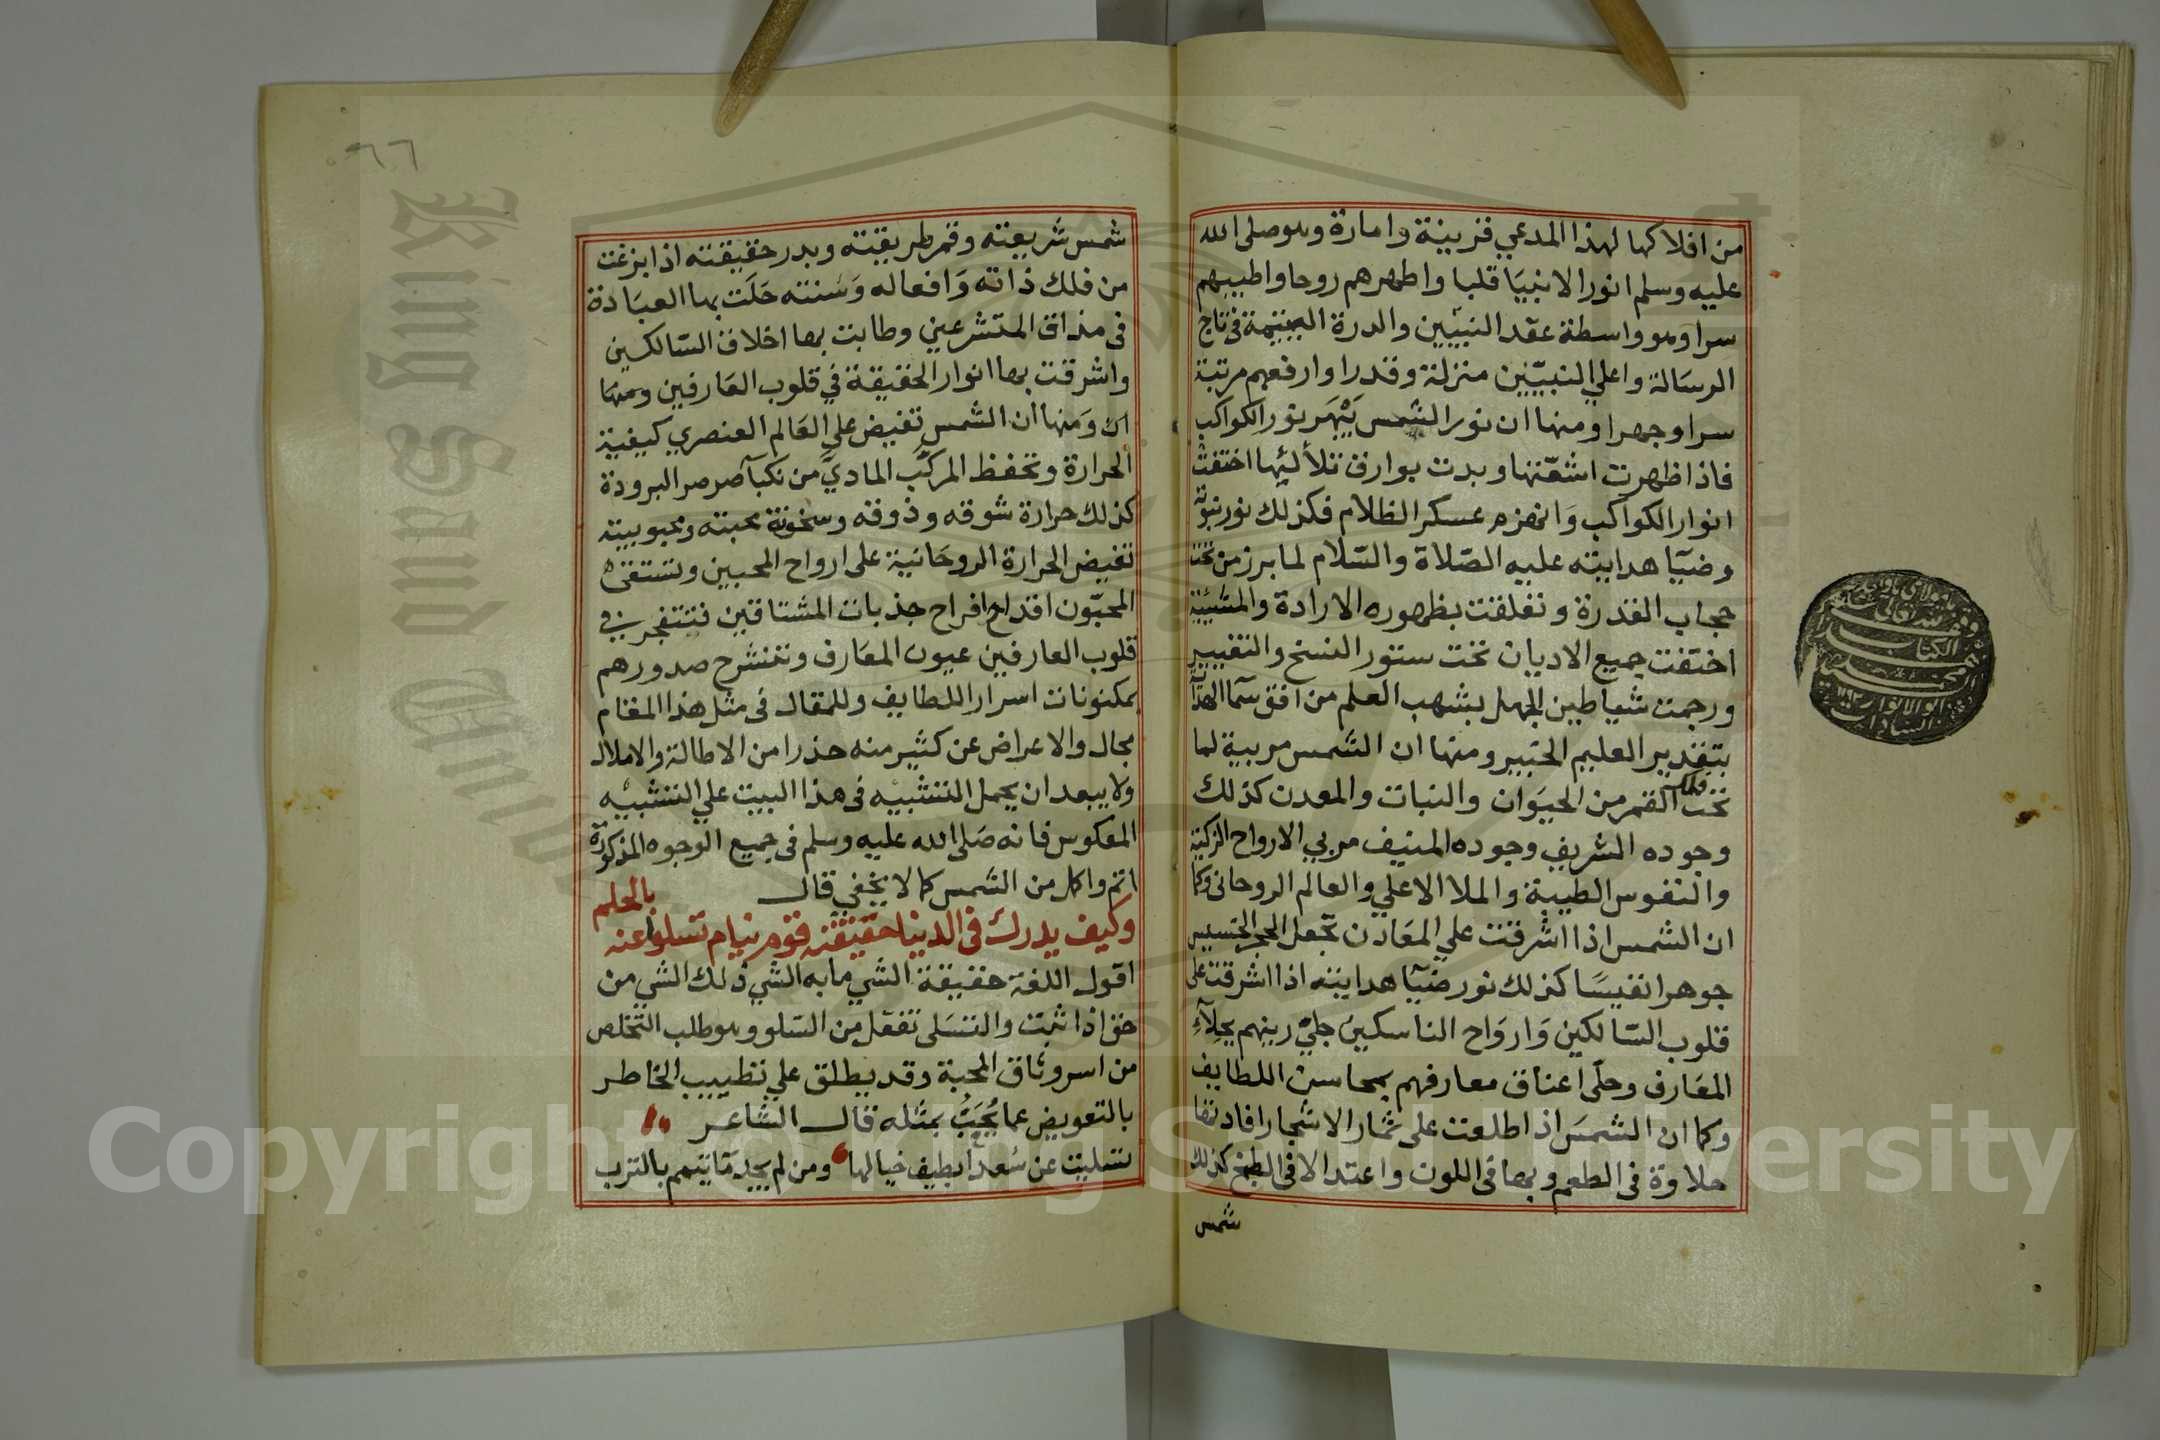 من افلاكها لهذا المدعي قرينة وامارة وهو صلى الله
عليه وسلم انور الانبيا قلبا واطهرهم روحا واطيبهم
سرا وهو واسطة عقد النبيين والدرة اليتيمة في تاج
الرسالة واعلي النبيّين منزلة وقدرا وارفعهم مرتبة
سرا وجهرا ومنها ان نور الشمس يَبْهَر نور الكواكب
فاذا ظهرت اشعّتها وبدت بوارق تلألئها اختفت
انوار الكواكب وَانهزم عسكر الظلام فكذلك نور نبوّته
وضيآ هدايته عليه الصّلاة والسّلام لما برز من تحت
حجاب القدرة وتعلقت بظهوره الارادة والمشيئة
اختفت جميع الاديان تحت ستور النسخ والتغيير
ورجمت شياطين الجهل بشهب العلم من افق سمآ الهدآ
بتقدير العليم الخبير ومنها ان الشمس مربية لما
تحت فلك القمر من الحيوَان والنبات والمعدن كذلك
وجوده الشريف وجوده المنيف مربي الارواح الزكية
والنفوس الطيبة والملا الاعلي والعالم الروحاني وكما
ان الشمس اذا اشرقت علي المعَادن تجعل الحجر الخسيس
جوهرا نفيسًا كذلك نور ضيآ هدايته اذا اشرقت على
قلوب السّالكين وَاروَاح الناسكين جلي رينهم بجلآءِ
المعَارف وحلّى اعناق معارفهم بمحاسن اللطايف
وكما ان الشمسَ اذ اطلعت على ثمار الاشجار افادتها
حلاوة في الطعم وبها في اللون واعتدالا في الطبخ كذلك
شمس
٦٦
شمس شريعته وقمر طريقته وبدر حقيقته اذا بزغت
من فلك ذاته وَافعاله وَسُنته حَلَت بها العبَادة
في مذاق المتشرعين وطابت بها اخلاق السّالكين
واشرقت بها انوار الحقيقة في قلوب العَارفين ومنها
ان وَمنها ان الشمس تفيض علي العَالم العنصري كيفية
الحرارة وتحفظ المركّب الماديّ من نكبآ صرصر البرودة
كذلك حرارة شوقه وذوقه وسخونة محبته ومحبوبيته
تفيض الحرارة الروحَانية على ارواح المحبين وتستقي
المحبّون اقداح افراح جذبات المشتاقين فتتفجر في
قلوب العارفين عيون المعَارف وتنشرح صدورهم
بمكنونات اسرار اللطايف وللمقال في مثل هذا المقام
مجال والاعراض عن كثير منه حذرا من الاطالة والاملال
ولا يبعد ان يحمل التشبيه في هذا البيت علي التشبيه
المعكوس فانه صَلى الله عليه وسلم في جميع الوجوه المذكورة
اتم واكمل من الشمس كما لا يخفي قال
وكيف يدرك في الدنيا حقيقته قوم نيام تسلوا عنه
بالحلم
اقول اللغة حقيقة الشي ما به الشي ذلك الشي من
حق اذا ثبت والتسَلى تفعّل من السّلو وهو طلب التخلص
من اسر وثاق المحبة وقد يطلق علي تطييب الخاطر
بالتعويض عما يُحَبُّ بمثله قال الشاعر
تسليت عن سُعدا بطيف خيالها ومن لم يجد مَا يتيمم بالترب